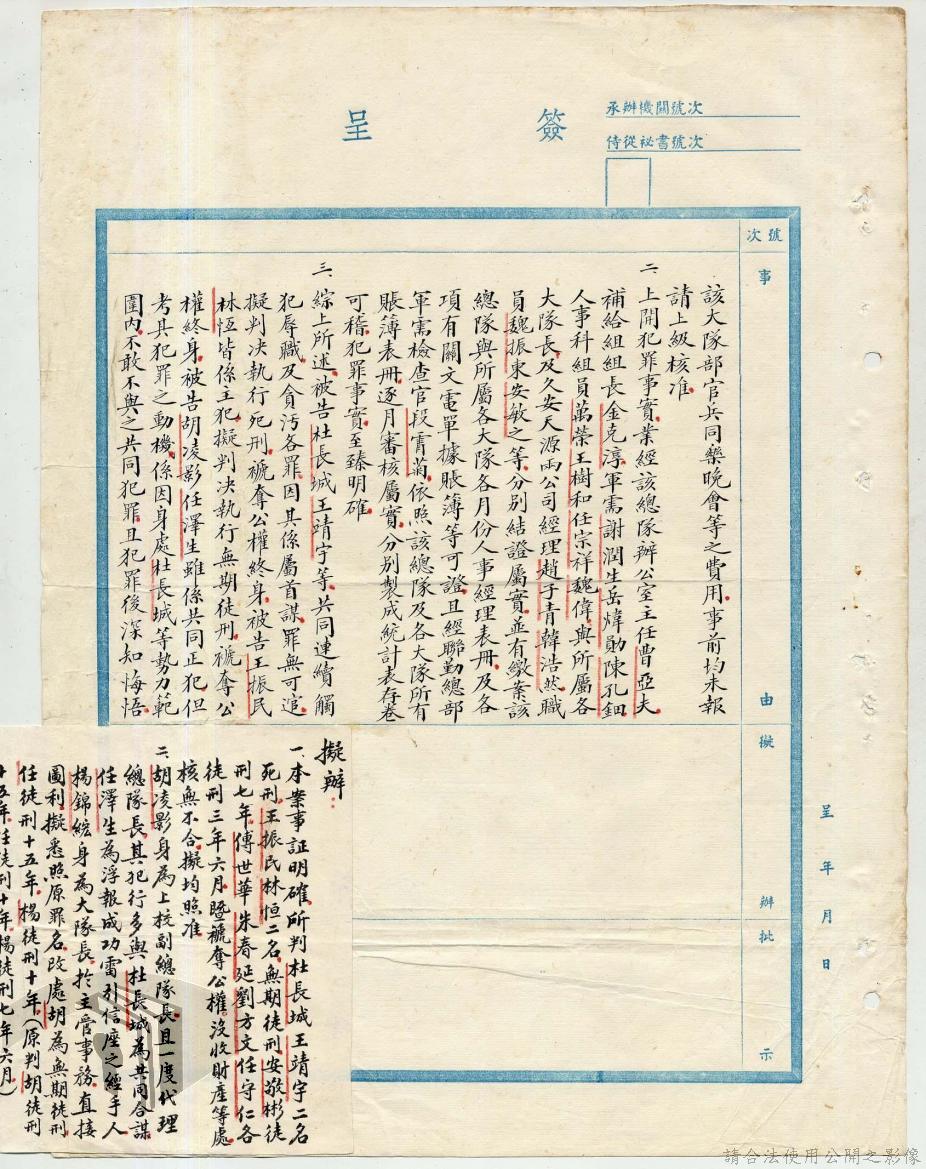 簽呈
承辦機關號次
侍從祕書號次
號次
事由
擬辦
批示
呈 年 月 日
該大隊部官兵同樂晚會等之費用事前均未報
請上級核准
二、上開犯罪事實業經該總隊辦公室主任曹亞夫
補給組組長金克淳軍需謝潤生岳煒勛陳孔鈿
人事科組員萬榮王樹和任宗祥魏偉與所屬各
大隊長及久安天源兩公司經理趙子青韓浩然職
員魏振東安敏之等分別結證屬實並有繳案該
總隊與所屬各大隊各月份人事經理表冊及各
項有關文電單據賬簿等可證且經聯勤總部
軍需檢查官段霄菊依照該總隊及各大隊所有
賬簿表冊逐月審核屬實分別製成統計表存卷
可稽犯罪事實至臻明確
三、綜上所述被告杜長城王靖宇等共同連續觸
犯辱職及貪污各罪因其係屬首謀罪無可逭
擬判決執行死刑褫奪公權終身被告王振民
林恒皆係主犯擬判決執行無期徒刑褫奪公
權終身被告胡凌影任澤生雖係共同正犯但
考其犯罪之動機係因身處杜長城等勢力範
圍內不敢不與之共同犯罪且犯罪後深知悔悟
擬辦：
一、本案事証明確所判杜長城王靖宇二名
死刑王振民林恒二名無期徒刑安敬彬徒
刑七年傅世華朱春延劉方文任守仁各
徒刑三年六月暨褫奪公權沒收財產等處
核無不合擬均照准
二、胡凌影身為上校副總隊長且一度代理
總隊長其犯行多與杜長城為共同合謀
任澤生為浮報成功雷引信座之經手人
楊錦綋身為大隊長於主管事務直接
圖利擬悉照原罪名改處胡為無期徒刑
任徒刑十五年楊徒刑十年（原判胡徒刑
十五年任徒刑十年楊徒刑七年六月）
請合法使用公開之影像